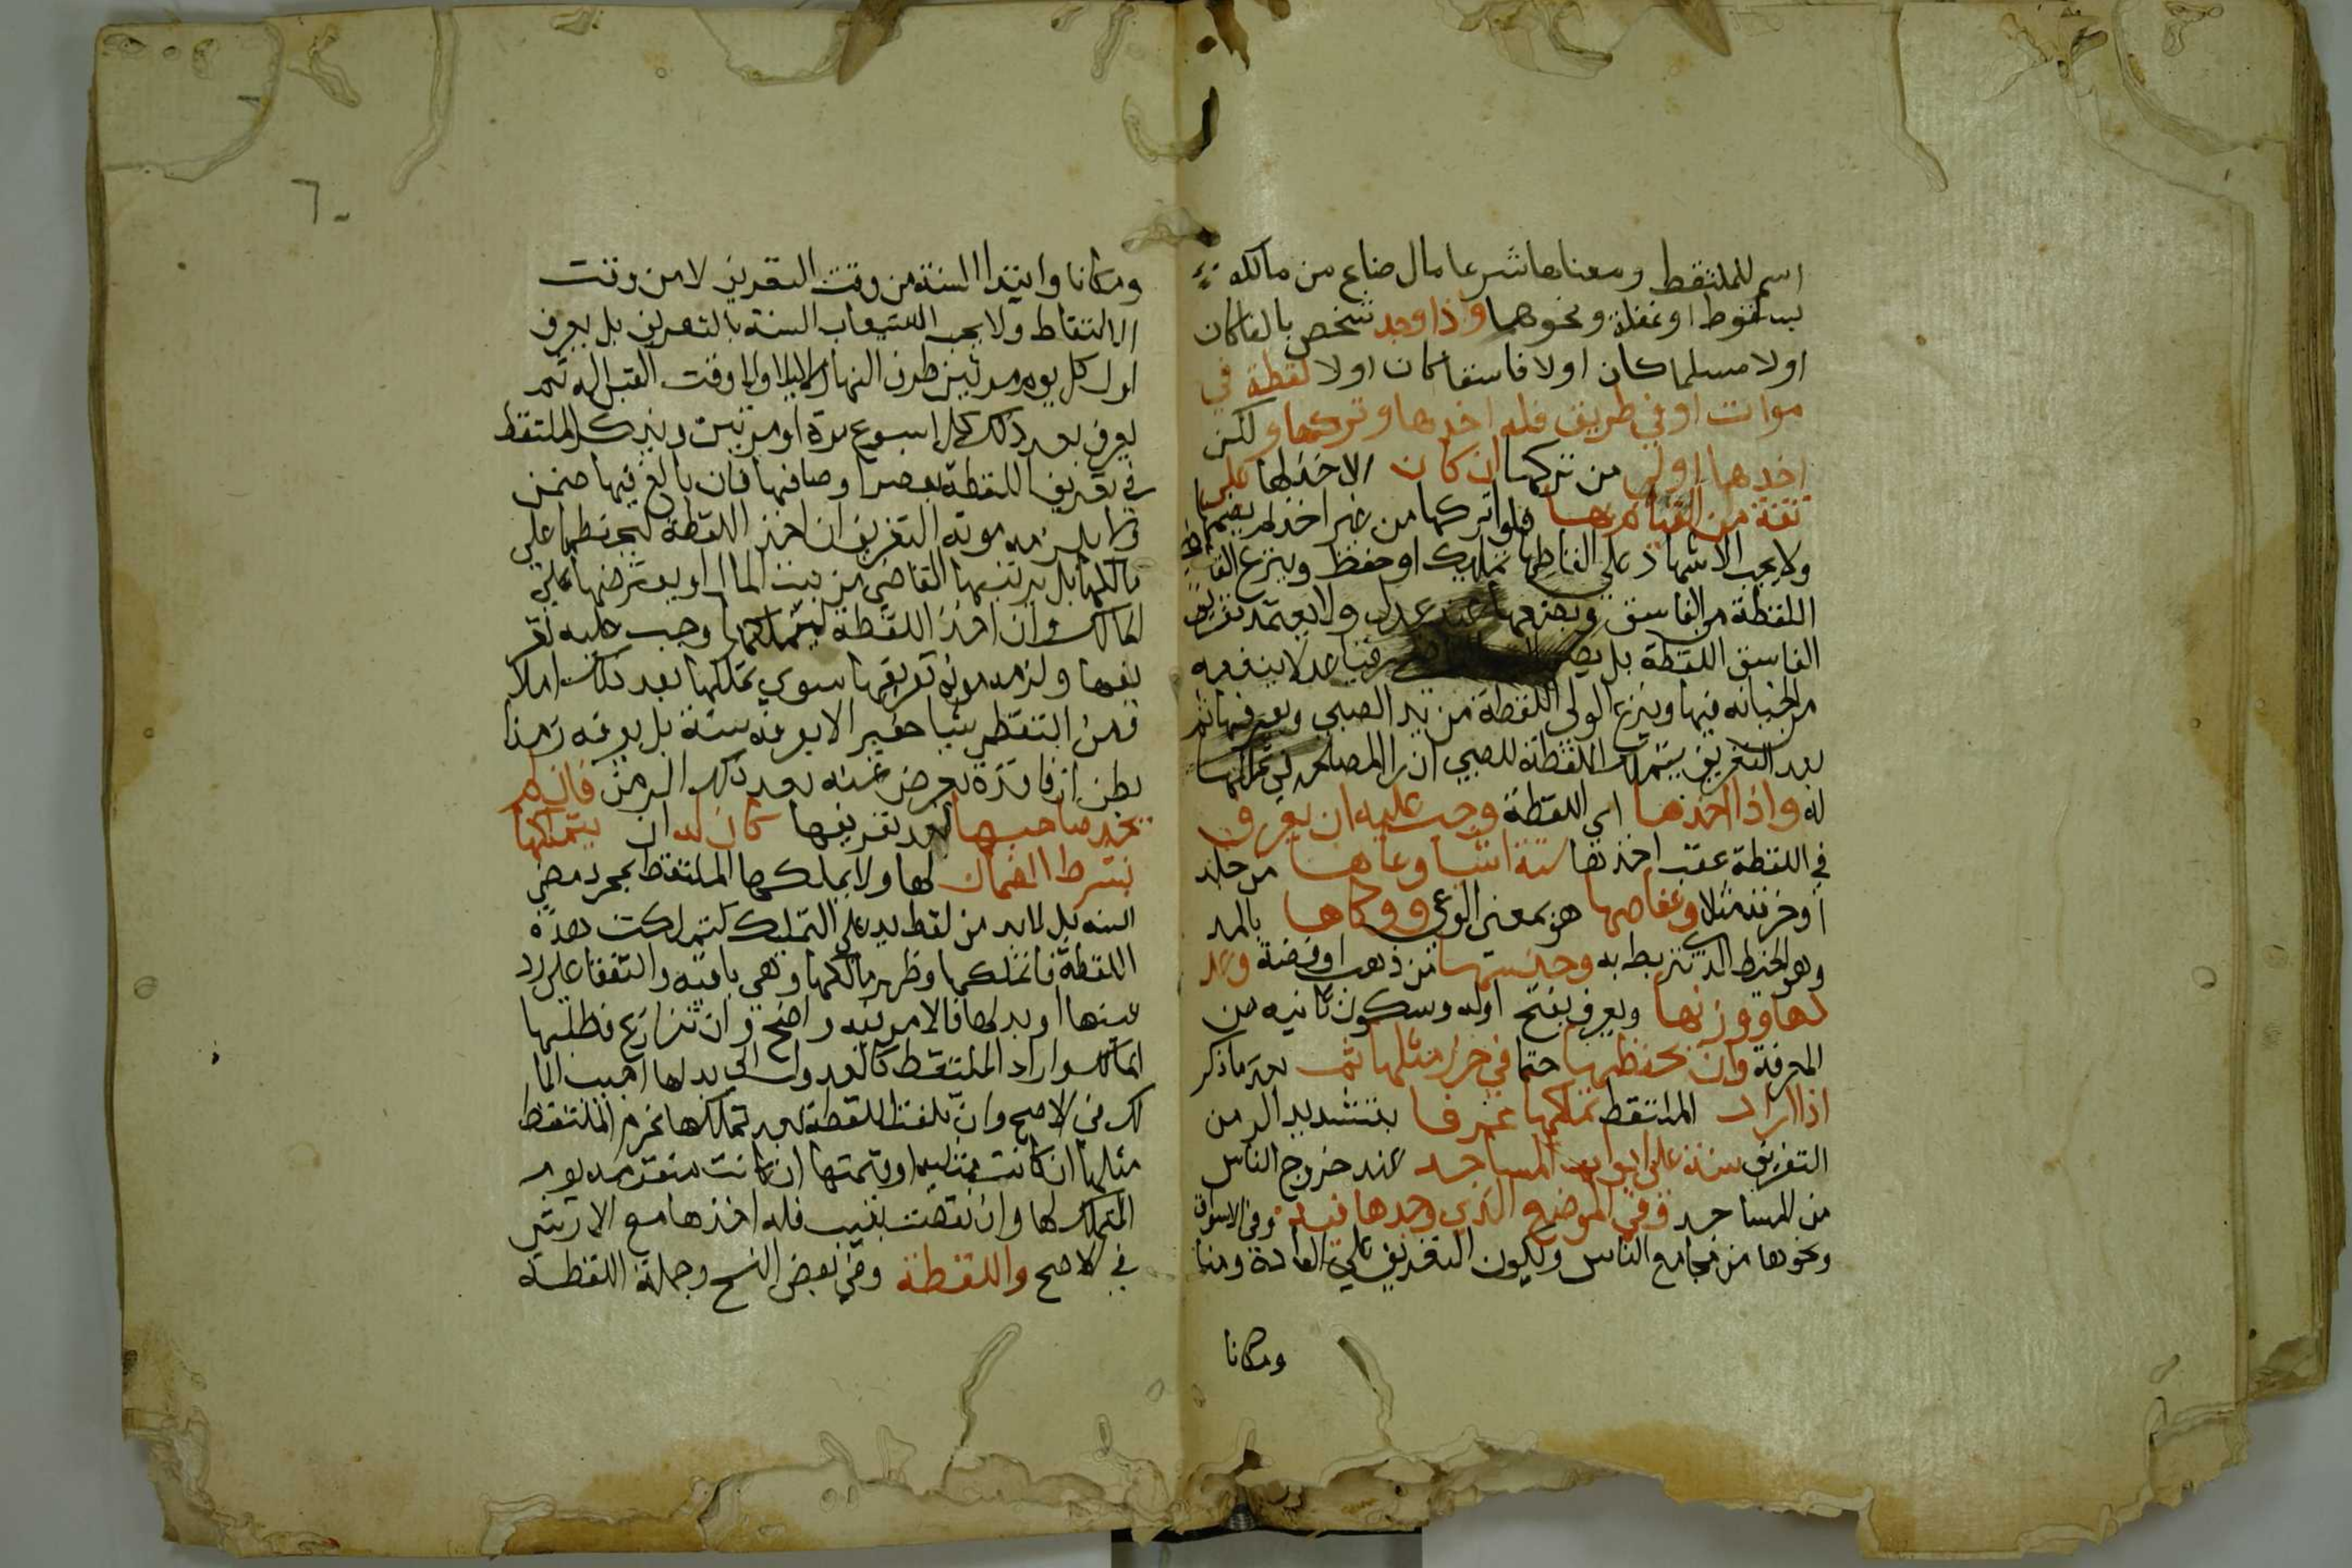 اسم للملتقط ومعناها شرعا مال ضاع من مالكه
بسقوط او غفلة ونحوهما واذا وجد شخص بالغا كان
اولا مسلما كان اولا فاسقا كان اولا لقطة في
موات او في طريق فله اخذها وتركها ولكن
اخذها اولى من تركها ان كان الاخذ لها على
ثقة من القيام بها فلو تركها من غير اخذ لم يضمنها
ولا يجب الاشهاد على التقاطها لتمليك او حفظ وينزع القاضي
اللقطة من الفاسق ويضعها عند عدل ولا يعتمد تعريف
الفاسق اللقطة بل يضم رقيبا عدلا يمنعه
من الخيانة فيها وينزع الولي اللقطة من يد الصبي ويعرفها ثم
بعد التعريف يتملك اللقطة للصبي ان راى المصلحة في تملكها
له واذا اخذها اي اللقطة وجب عليه ان يعرف
في اللقطة عقب اخذها ستة اشيا وعاها من جلد
او خرقة مثلا وعفاصها هو بمعنى الوعا ووكاها بالمد
وهو الخيط الذي تربط به وجنسها من ذهب او فضة وعد
دها ووزنها ويعرف بفتح اوله وسكون ثانيه من
المعرفة وان يحفظها حتما في حرز مثلها ثم بعد ما ذكر
اذا اراد الملتقط تملكها عرفها بتشديد الر من
التعريف سنة على ابواب المساجد عند خروج الناس
من المساجد وفي الموضع الذي وجدها فيه وفي الاسواق
ونحوها من مجامع الناس ويكون التعريف على العادة زمنا
ومكانا
٦٠
ومكانا وابتدا السنة من وقت التعريف لا من وقت
الالتقاط ولا يجب استيعاب السنة بالتعريف بل يعرف
اول كل يوم مرتين طرف النهار لا ليلا ولا وقت القيلولة ثم
يعرف بعد ذلك كل اسبوع مرة او مرتين ويذكر الملتقط
في تعريف اللقطة بعض اوصافها فان بالغ فيها ضمن
ولا يلزمه مونة التعريف ان اخذ اللقطة ليحفظها على
مالكها بل يرتبها القاضي من بيت المال او يقترضها على
المالك وان اخذ اللقطة ليتملكها وجب عليه تعر
يفها ولزمه مونة تعريفها سوى تملكها بعد ذلك ام لا
ومن التقط شيا حقيرا لا يعرفه سنة بل يعرفه زمنا
يظن ان فاقده يعرض عنه بعد ذلك الزمن فان لم
يجد صاحبها بعد تعريفها كان له ان يتملكها
بشرط الضمان لها ولا يملكها الملتقط بمجرد مضي
السنة بل لابد من لفظ يدل على التملك كتملكت هذه
اللقطة فان تملكها وظهر مالكها وهي باقية واتفقا على رد
عينها او بدلها فالامر فيه واضح وان تنازع فطلبها
المالك واراد الملتقط العدول الى بدلها اجيب الما
لك في الاصح وان تلفت اللقطة بعد تملكها غرم الملتقط
مثلها ان كانت مثلية او قيمتها ان كانت متقومة يوم
التملك لها وان نقصت بعيب فله اخذها مع الارش
في الاصح واللقطة وفي بعض النسخ وجملة اللقطة